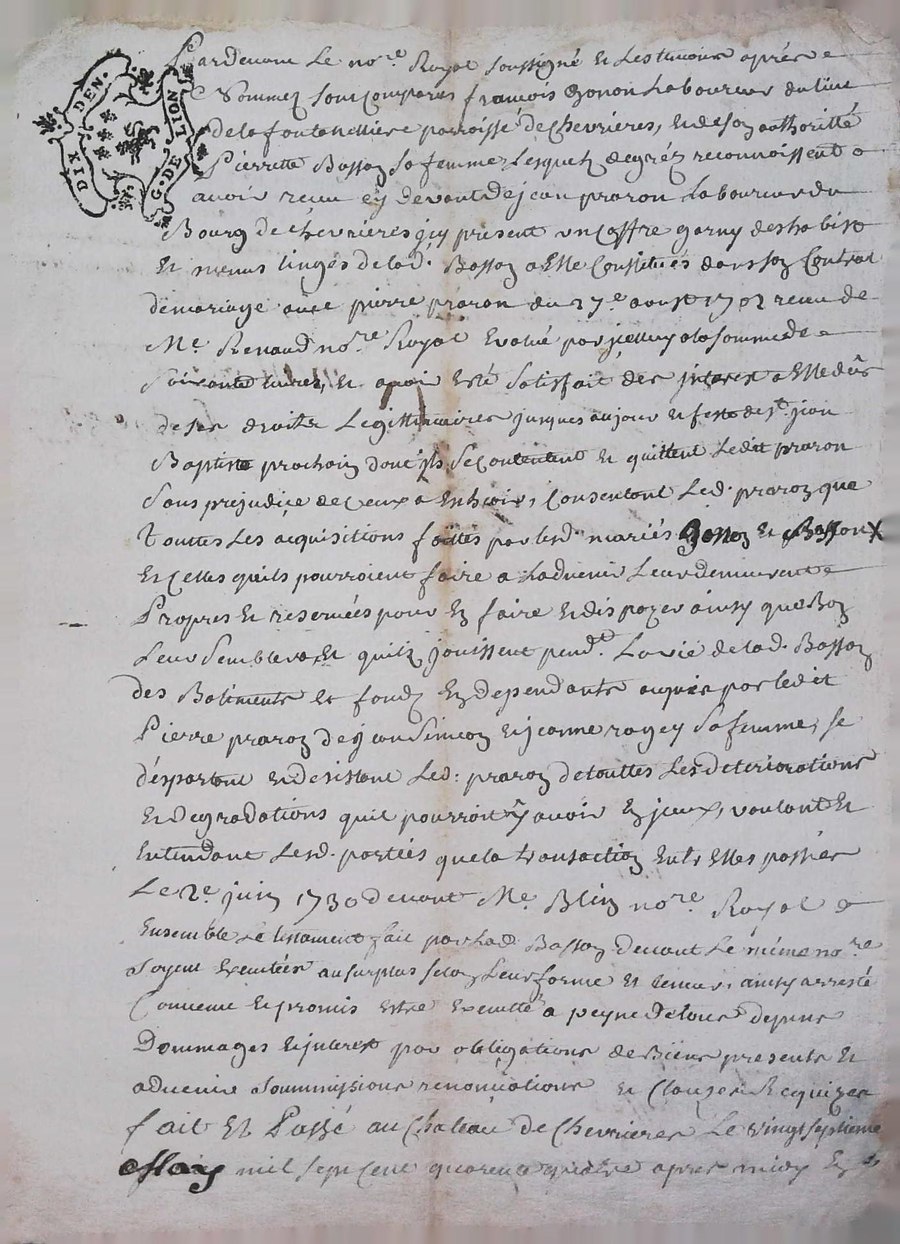 DIX DEN.
G. DE LION
Pardevant Le no.re Royal soussigné Et Les temoins aprés
Nommez sont comparus françois Bonon Laboureur du lieu
de la fontanilliere parroisse de Chevrieres, Et de son authoritté
Pierrette Basson sa femme Lesquelz de gréz reconnoissent
avoir receu cy devant de jean praron Laboureur du
Bourg de Chevrieres icy present un Coffre garny des habist
Et menus linges de lad. Basson a Elle Constitués dans son Contrat
de mariage avec pierre praron du 27.e aoust 1702 receu de
Me. Renaud no.re Royal Evalué par jcelluy a la somme de
soixante livres, Et avoir Esté satisfait des interest a Elle dûs
de ses droits Legittimaires jusques au jour Et feste de st. jean
Baptiste prochain dont ils se Contentent Et quittent Ledit praron
sans prejudice de Ceux a Escheoir, Consentant Led. praron que
touttes Les acquisitions faittes par lesd. mariés Et Basson
Et Celles quils pourroient faire a Ladvenir Leur demeurent
Propres Et reservées pour En faire Et dispozer ainsy que Bon
Leur semblera, Et quilz jouissent pend.t La vie de lad. Basson
des Batiments Et fondz En dependants acquis par ledit
Pierre praron de jean Et jeanne sa femme, se
départant Et desistant Led. praron de touttes Les deteriorations
Et degradations quil pourroit y avoir En jceux, voulant Et
Entendant Lesd. parties que la transaction Entre Elles passée
Le 2.e juin 1730 devant Me. Blin no.re Royal
Ensemble Le testament fait par Lad. Basson devant Le méme no.re
soyent Executées au surplus selon Leur forme Et teneur, ainsy arresté
Convenu Et promis Estre Executté a peyne de tous depens
Dommages Et jnterest par obligations de Biens presents Et
advenir soummissions renonciations Et Clauzes Requizes
fait Et Passé au Chateau de Chevrieres Le vingt septieme
May mil sept Cent quarente quatre apres midy En